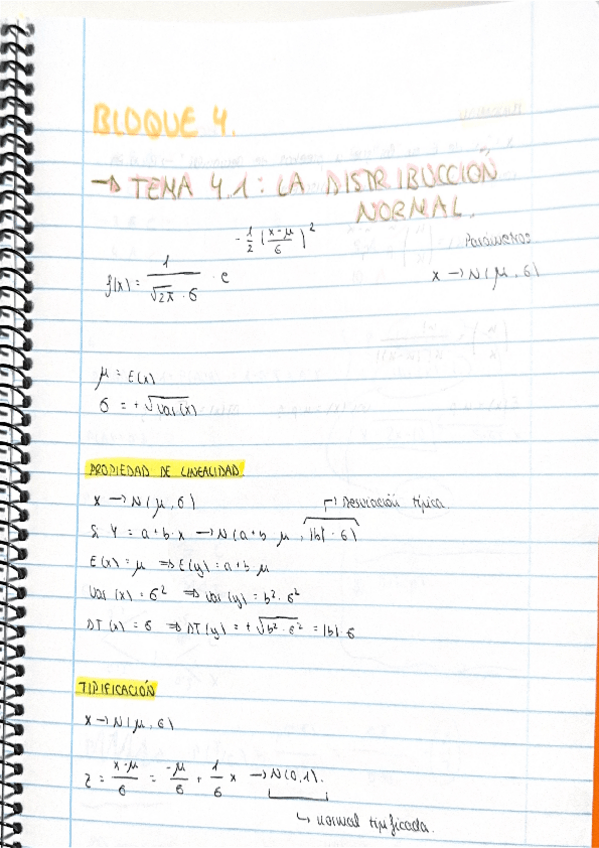 BLOQUE 4.
→ TEMA 4.1: LA DISTRIBUCCIÓN
NORMAL.
f(x) = 1 / √2π · σ · e^(-1/2 (x-μ / σ)^2)
Parámetros
x → N(μ, σ)
μ = E(x)
σ = +√var(x)
PROPIEDAD DE LINEALIDAD
x → N(μ, σ)
→ Desviación típica.
Si Y = a+b·x → N(a+b μ, |b|·σ)
E(x) = μ ⇒ E(y) = a+b μ
var(x) = σ² ⇒ var(y) = b²·σ²
DT(x) = σ ⇒ DT(y) = +√b²·σ² = |b|·σ
TIPIFICACIÓN
x → N(μ, σ)
z = x-μ / σ = -μ / σ + 1 / σ x → N(0,1).
↳ normal tipificada.